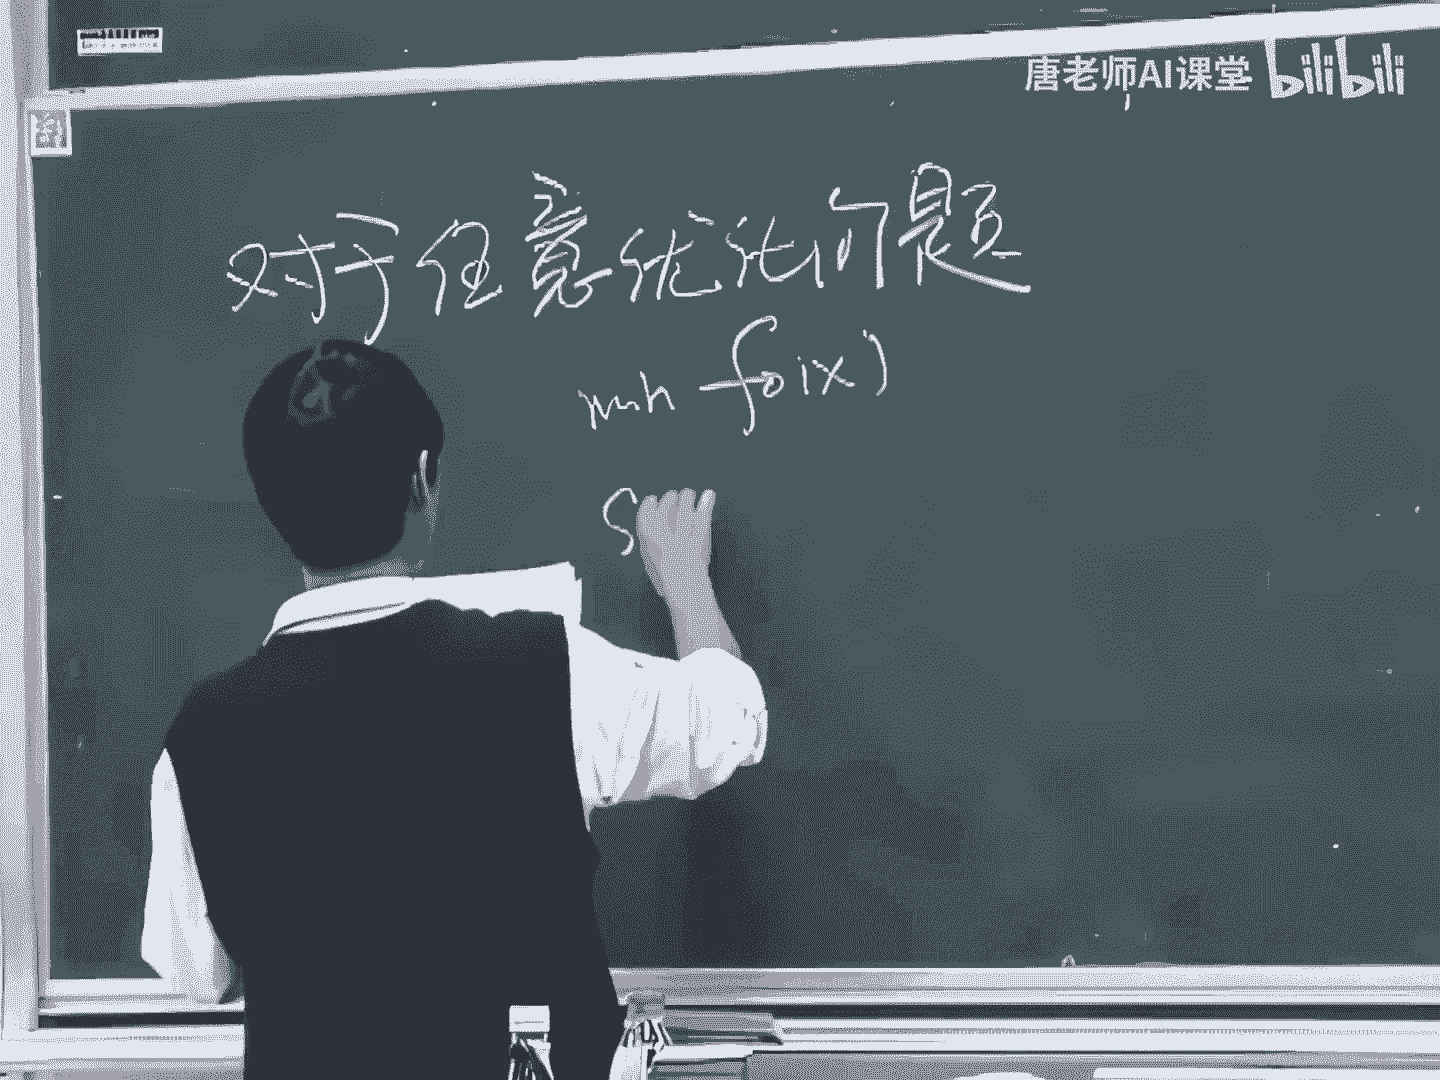 唐老师AI课堂 bilibili
对于任意优化问题
min f₀(x)
S